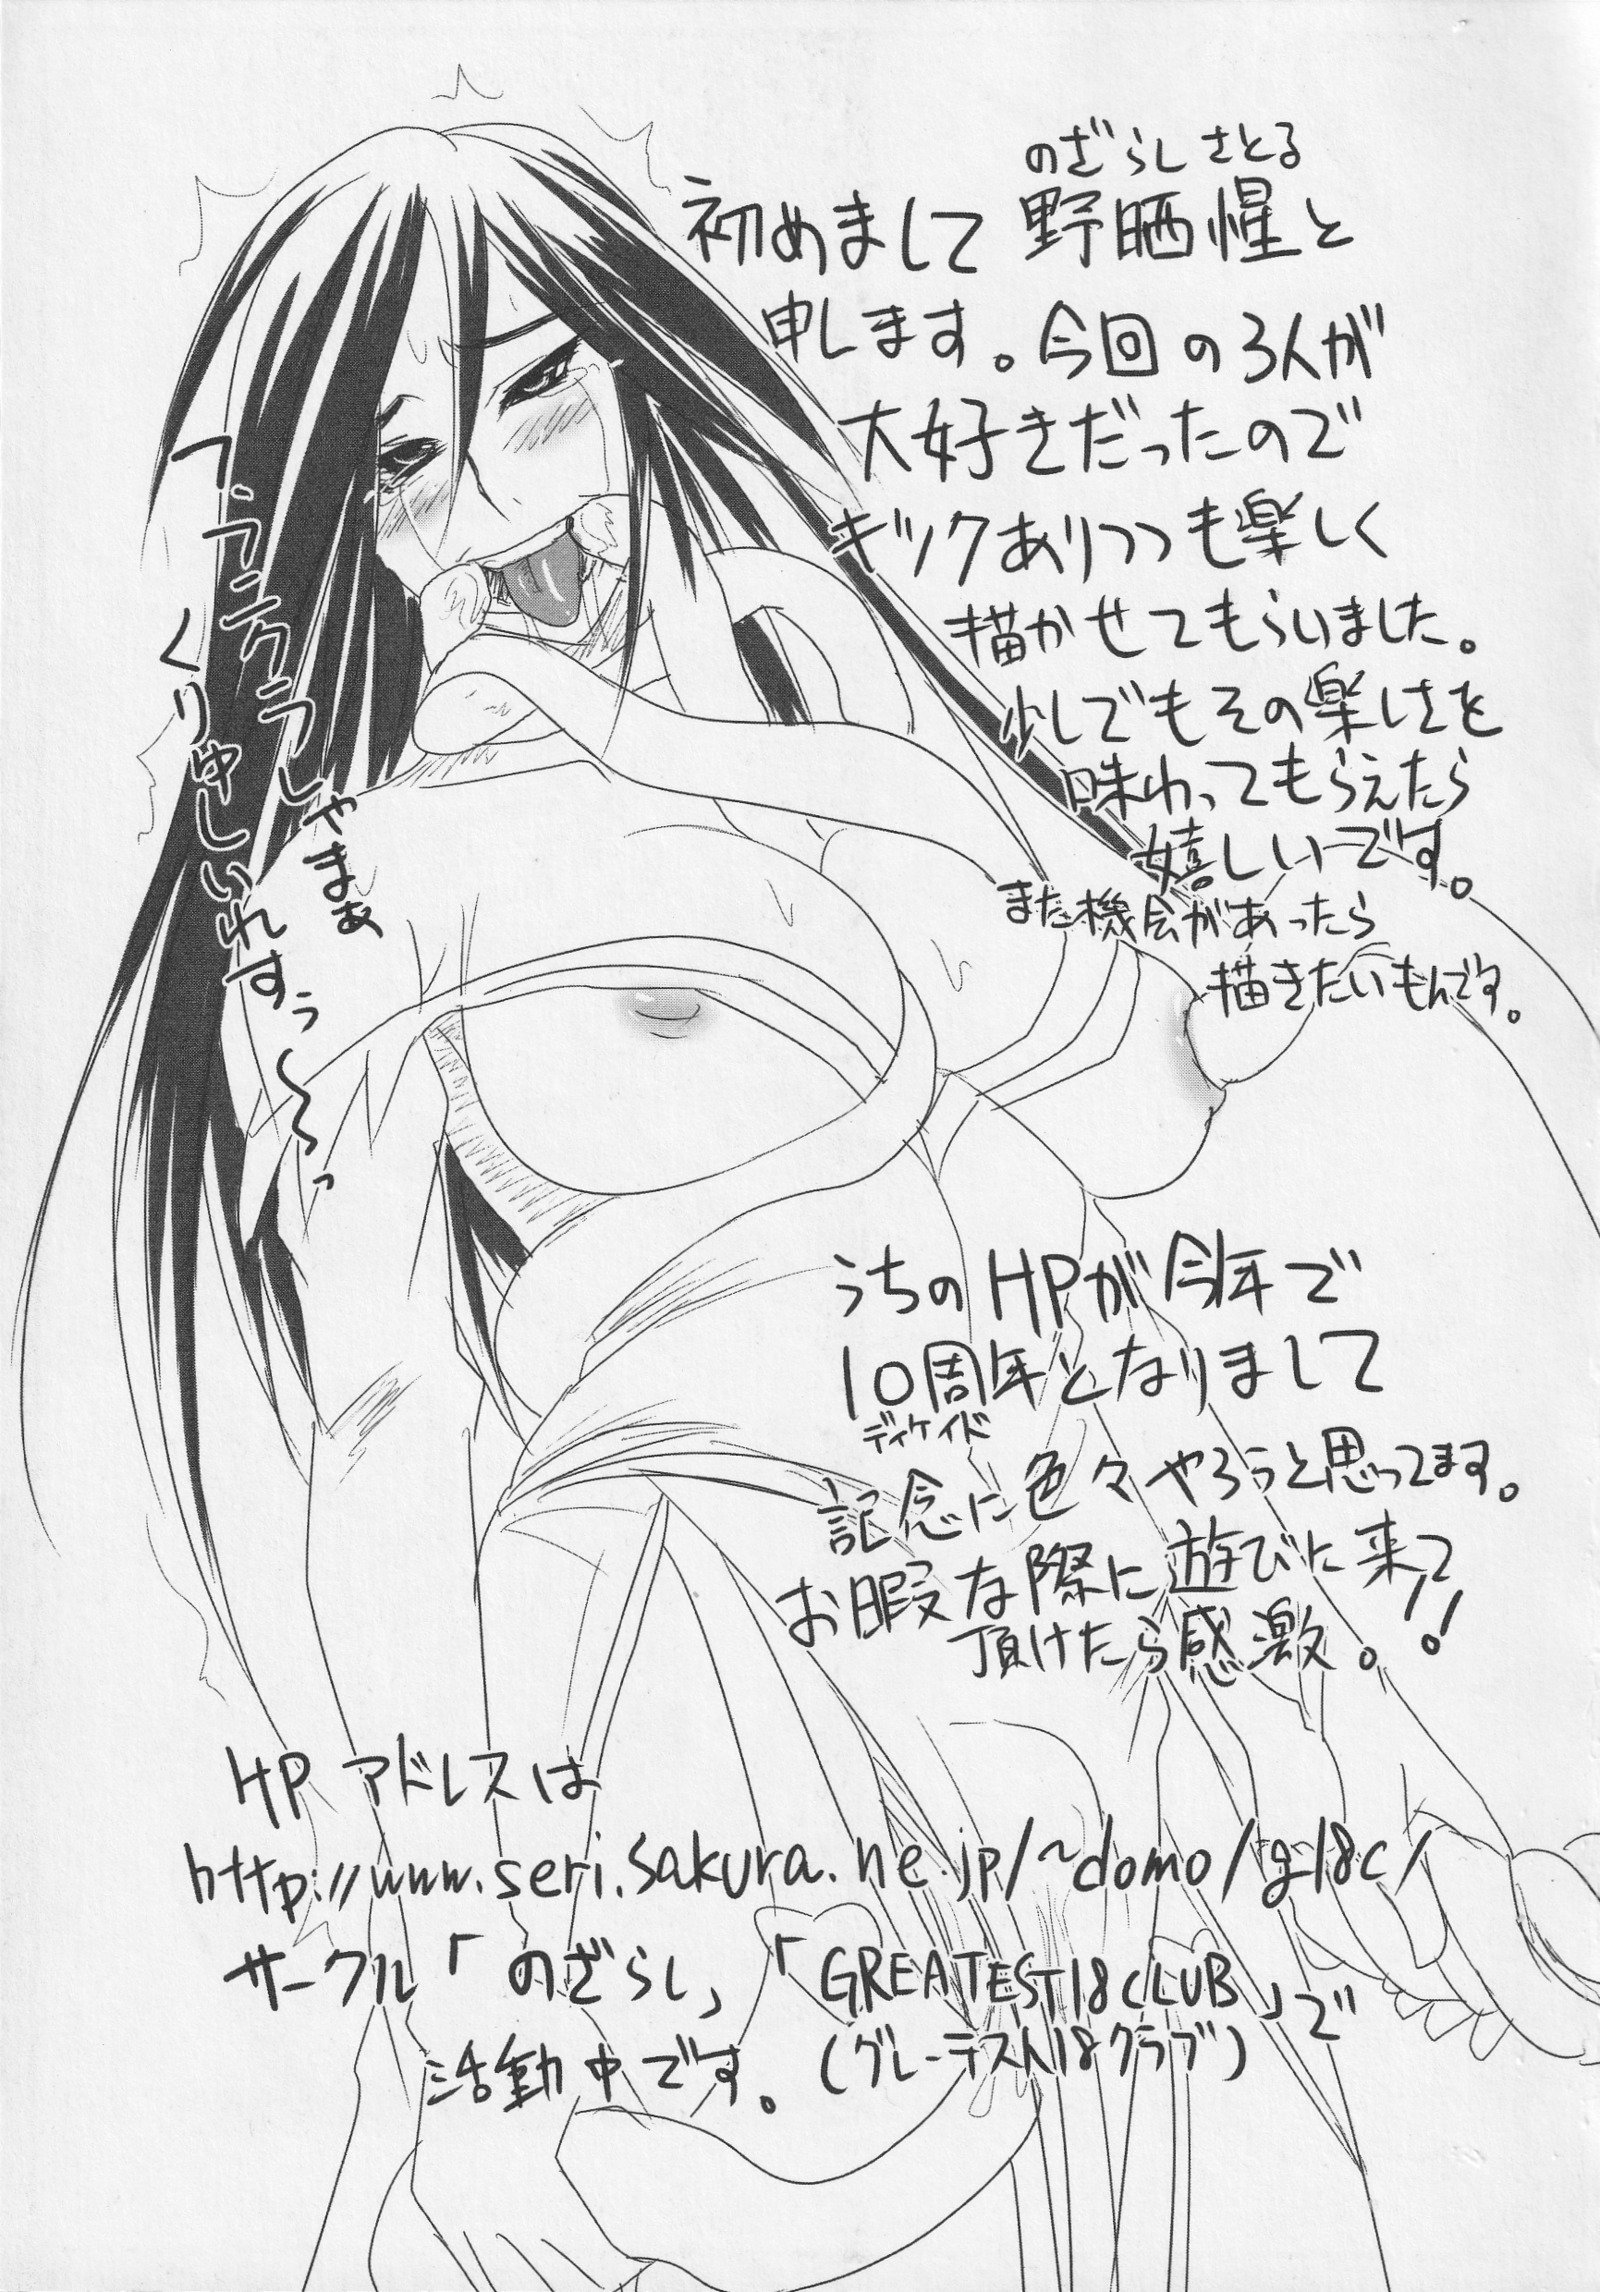 のざらし さとる
初めまして 野晒惺と
申します。今回の3人が
大好きだったので
ギックありつつも楽しく
描かせてもらいました。
少しでもその楽しさを
味わってもらえたら
嬉しいです。
また機会があったら
描きたいもんです。
くりゅしいれすぅ〜〜っ
うちのHPが今年で
10周年となりまして
ディケイド
記念に色々やろうと思ってます。
お暇な際に遊びに来て
頂けたら感激。!!
HPアドレスは
http://www.seri.sakura.ne.jp/~domo/g18c/
サークル「のざらし」「GREATEST18CLUB」で
(グレーテスト18クラブ)
活動中です。